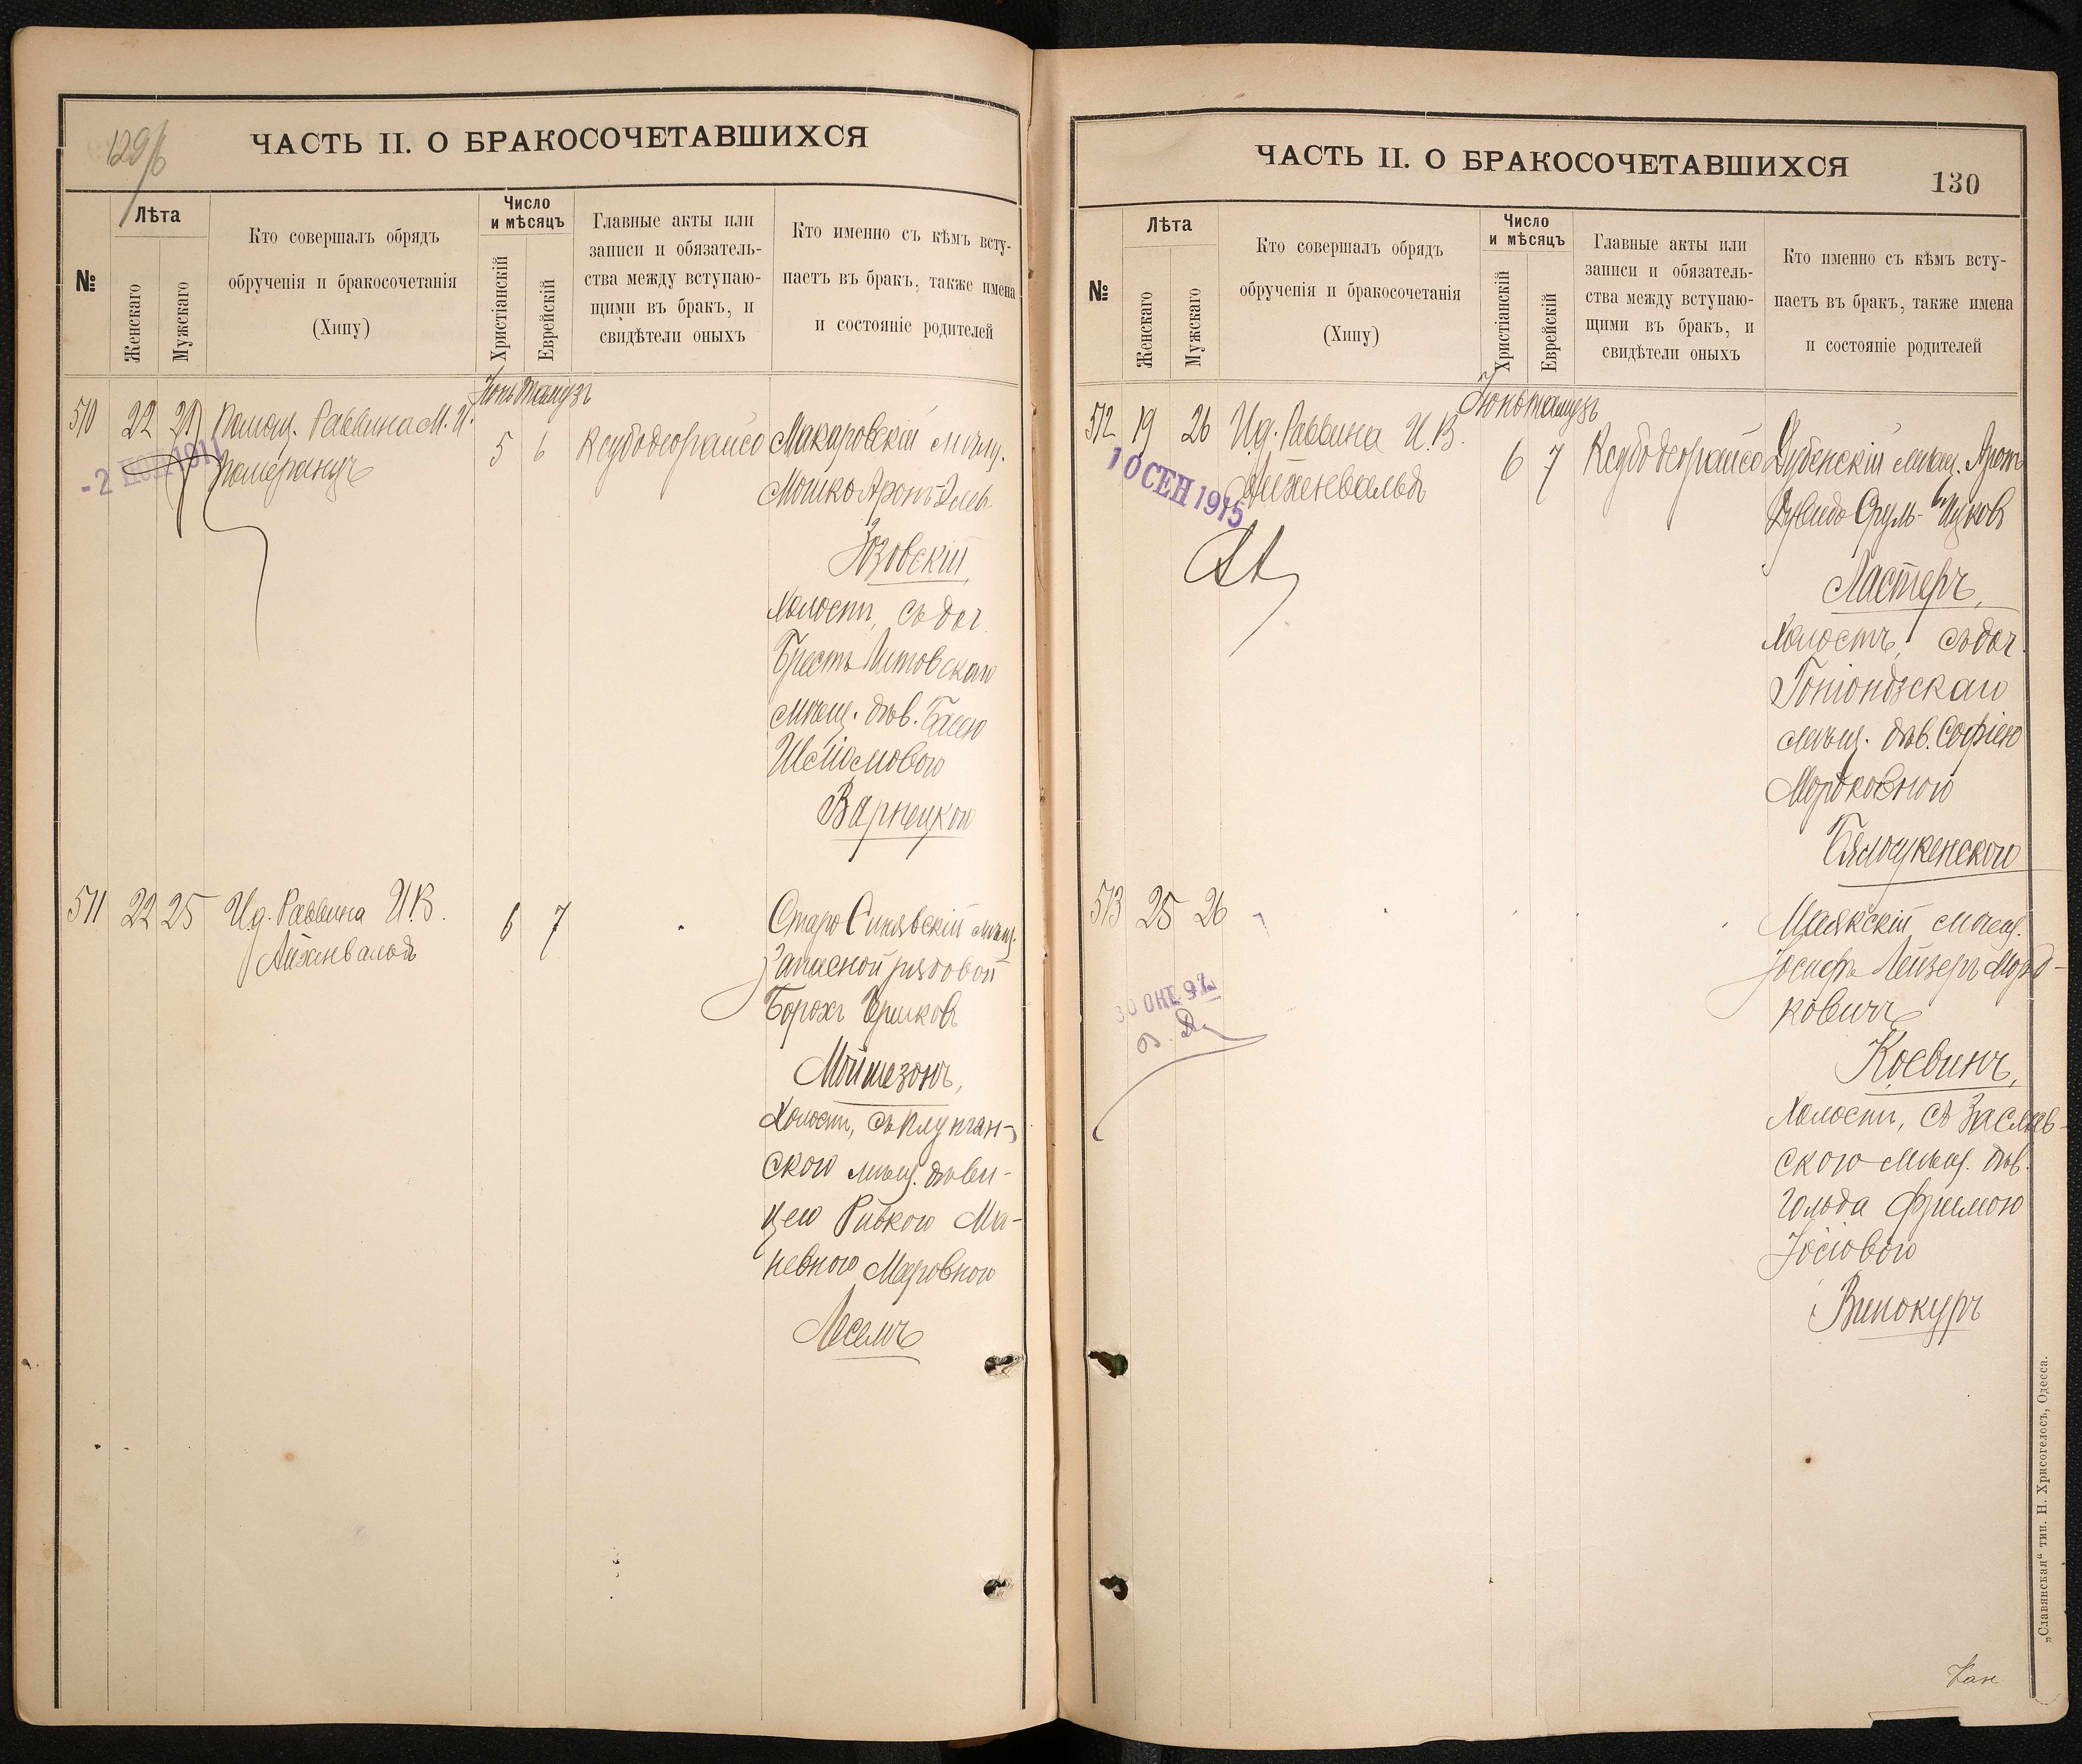 129/б
ЧАСТЬ II. О БРАКОСОЧЕТАВШИХСЯ
№
Лѣта
Женскаго
Мужскаго
Кто совершалъ обрядъ
обрученія и бракосочетанія
(Хипу)
Число
и мѣсяцъ
Христіанскій
Еврейскій
Главные акты или
записи и обязатель-
ства между вступаю-
щими въ бракъ, и
свидѣтели оныхъ
Кто именно съ кѣмъ всту-
паетъ въ бракъ, также имена
и состояніе родителей
Іюнь Тамузъ
510 22 27 Помощ. Раввина М. И.
Померанцъ
5 6 Ксубодеорайсо
- 2 1911
Макаровскій мѣщ.
Мошко Аронъ
Юзовскій,
холостъ, съ доч.
Брестъ Литовскаго
мѣщ. дѣв. Басею
Шліомовою
Варнецкою
511 22 25 Ид. Раввина И.В.
Айхенвальдъ
6 7
Старо Синявскій мѣщ.
Запасной рядовой
Борохъ Гершковъ
Моймезонъ,
Холостъ, съ Плунган-
скою мѣщ. дѣви-
цею Ривкою Ма-
невною Меровною
Лесемъ
ЧАСТЬ II. О БРАКОСОЧЕТАВШИХСЯ
130
№
Лѣта
Женскаго
Мужскаго
Кто совершалъ обрядъ
обрученія и бракосочетанія
(Хипу)
Число
и мѣсяцъ
Христіанскій
Еврейскій
Главные акты или
записи и обязатель-
ства между вступаю-
щими въ бракъ, и
свидѣтели оныхъ
Кто именно съ кѣмъ всту-
паетъ въ бракъ, также имена
и состояніе родителей
Іюнь Тамузъ
512 19 26 Ид. Раввина И.В.
Айхенвальдъ
6 7 Ксубодеорайсо
10 СЕН 1915
Дубенскій мѣщ. Аронъ
Дувидъ Сруль-Ицковъ
Ластеръ,
холостъ, съ доч.
Гоніондзскаго
мѣщ. дѣв. Софіею
Мордковною
513 25 26
30 ОКТ 92
Маякскій мѣщ.
Іосифъ Лейзеръ Морд-
ковичъ
Коевинъ,
Холостъ, съ Заслав-
скою мѣщ. дѣв.
Гольда Фримою
Іосіовою
Винокуръ
„Славянская“ тип. Н. Хрисогелосъ, Одесса.